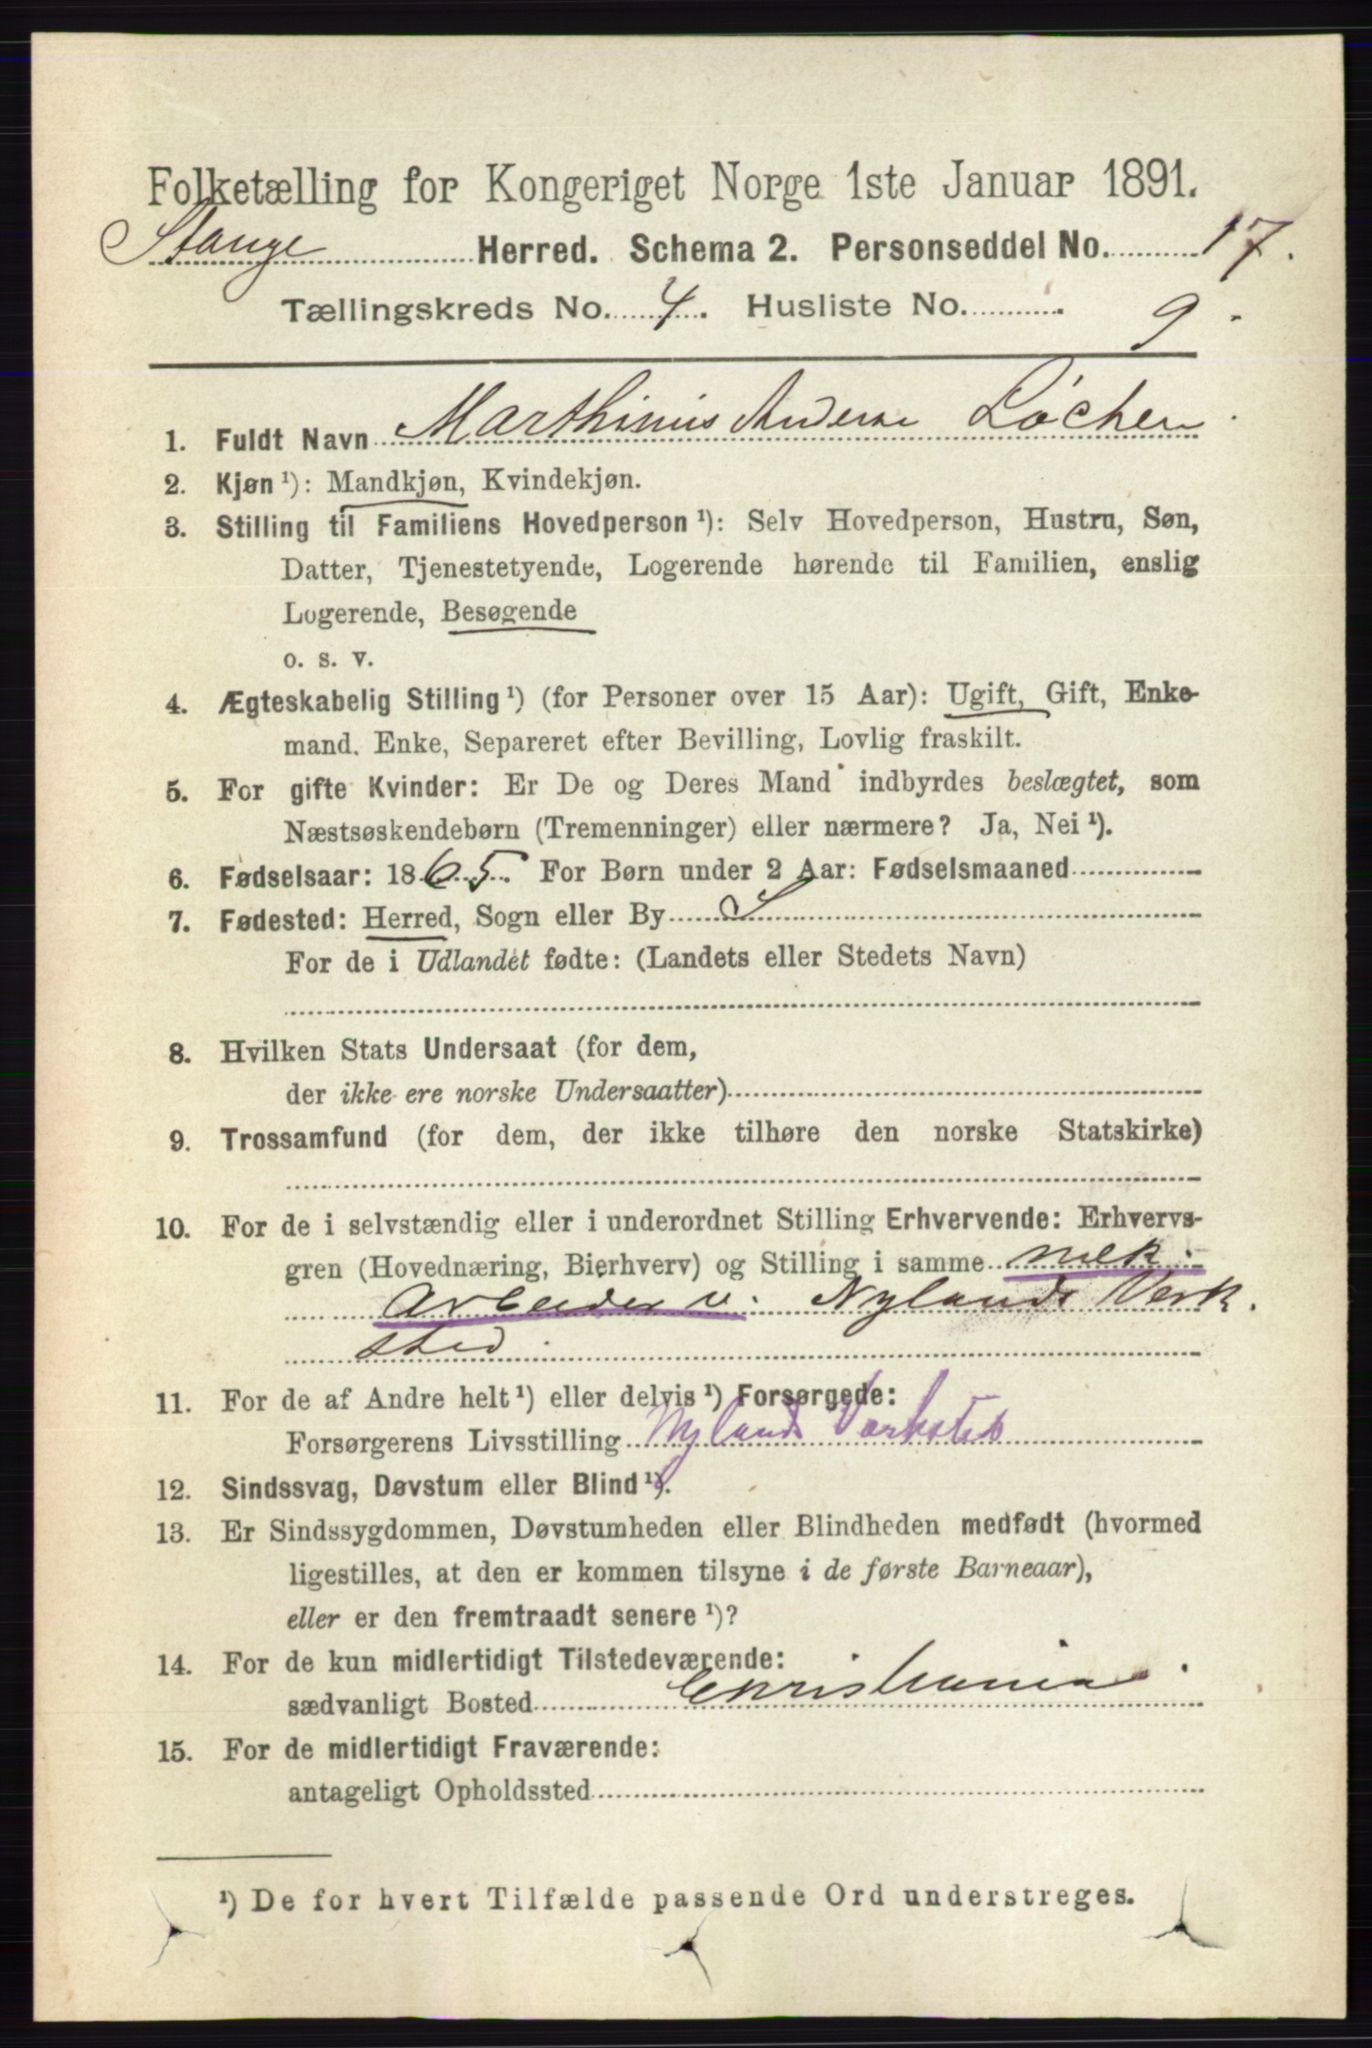 Folketælling for Kongeriget Norge 1ste Januar 1891.
Stange Herred. Schema 2. Personseddel No. 17.
Tællingskreds No. 4. Husliste No. 9.
1. Fuldt Navn Marthinius Løchen
2. Kjøn ¹): Mandkjøn, Kvindekjøn.
3. Stilling til Familiens Hovedperson ¹): Selv Hovedperson, Hustru, Søn,
Datter, Tjenestetyende, Logerende hørende til Familien, enslig
Logerende, Besøgende
o. s. v.
4. Ægteskabelig Stilling ¹) (for Personer over 15 Aar): Ugift, Gift, Enke-
mand. Enke, Separeret efter Bevilling, Lovlig fraskilt.
5. For gifte Kvinder: Er De og Deres Mand indbyrdes beslægtet, som
Næstsøskendebørn (Tremenninger) eller nærmere? Ja, Nei ¹).
6. Fødselsaar: 1865. For Børn under 2 Aar: Fødselsmaaned
7. Fødested: Herred, Sogn eller By S
For de i Udlandet fødte: (Landets eller Stedets Navn)
8. Hvilken Stats Undersaat (for dem,
der ikke ere norske Undersaatter)
9. Trossamfund (for dem, der ikke tilhøre den norske Statskirke)
10. For de i selvstændig eller i underordnet Stilling Erhvervende: Erhvervs-
gren (Hovednæring, Bierhverv) og Stilling i samme mek.
Arbeider v. Nylands Verk.
sted.
11. For de af Andre helt ¹) eller delvis ¹) Forsørgede:
Forsørgerens Livsstilling Nylands Værksted
12. Sindssvag, Døvstum eller Blind ¹).
13. Er Sindssygdommen, Døvstumheden eller Blindheden medfødt (hvormed
ligestilles, at den er kommen tilsyne i de første Barneaar),
eller er den fremtraadt senere ¹)?
14. For de kun midlertidigt Tilstedeværende:
sædvanligt Bosted Christiania.
15. For de midlertidigt Fraværende:
antageligt Opholdssted
¹) De for hvert Tilfælde passende Ord understreges.